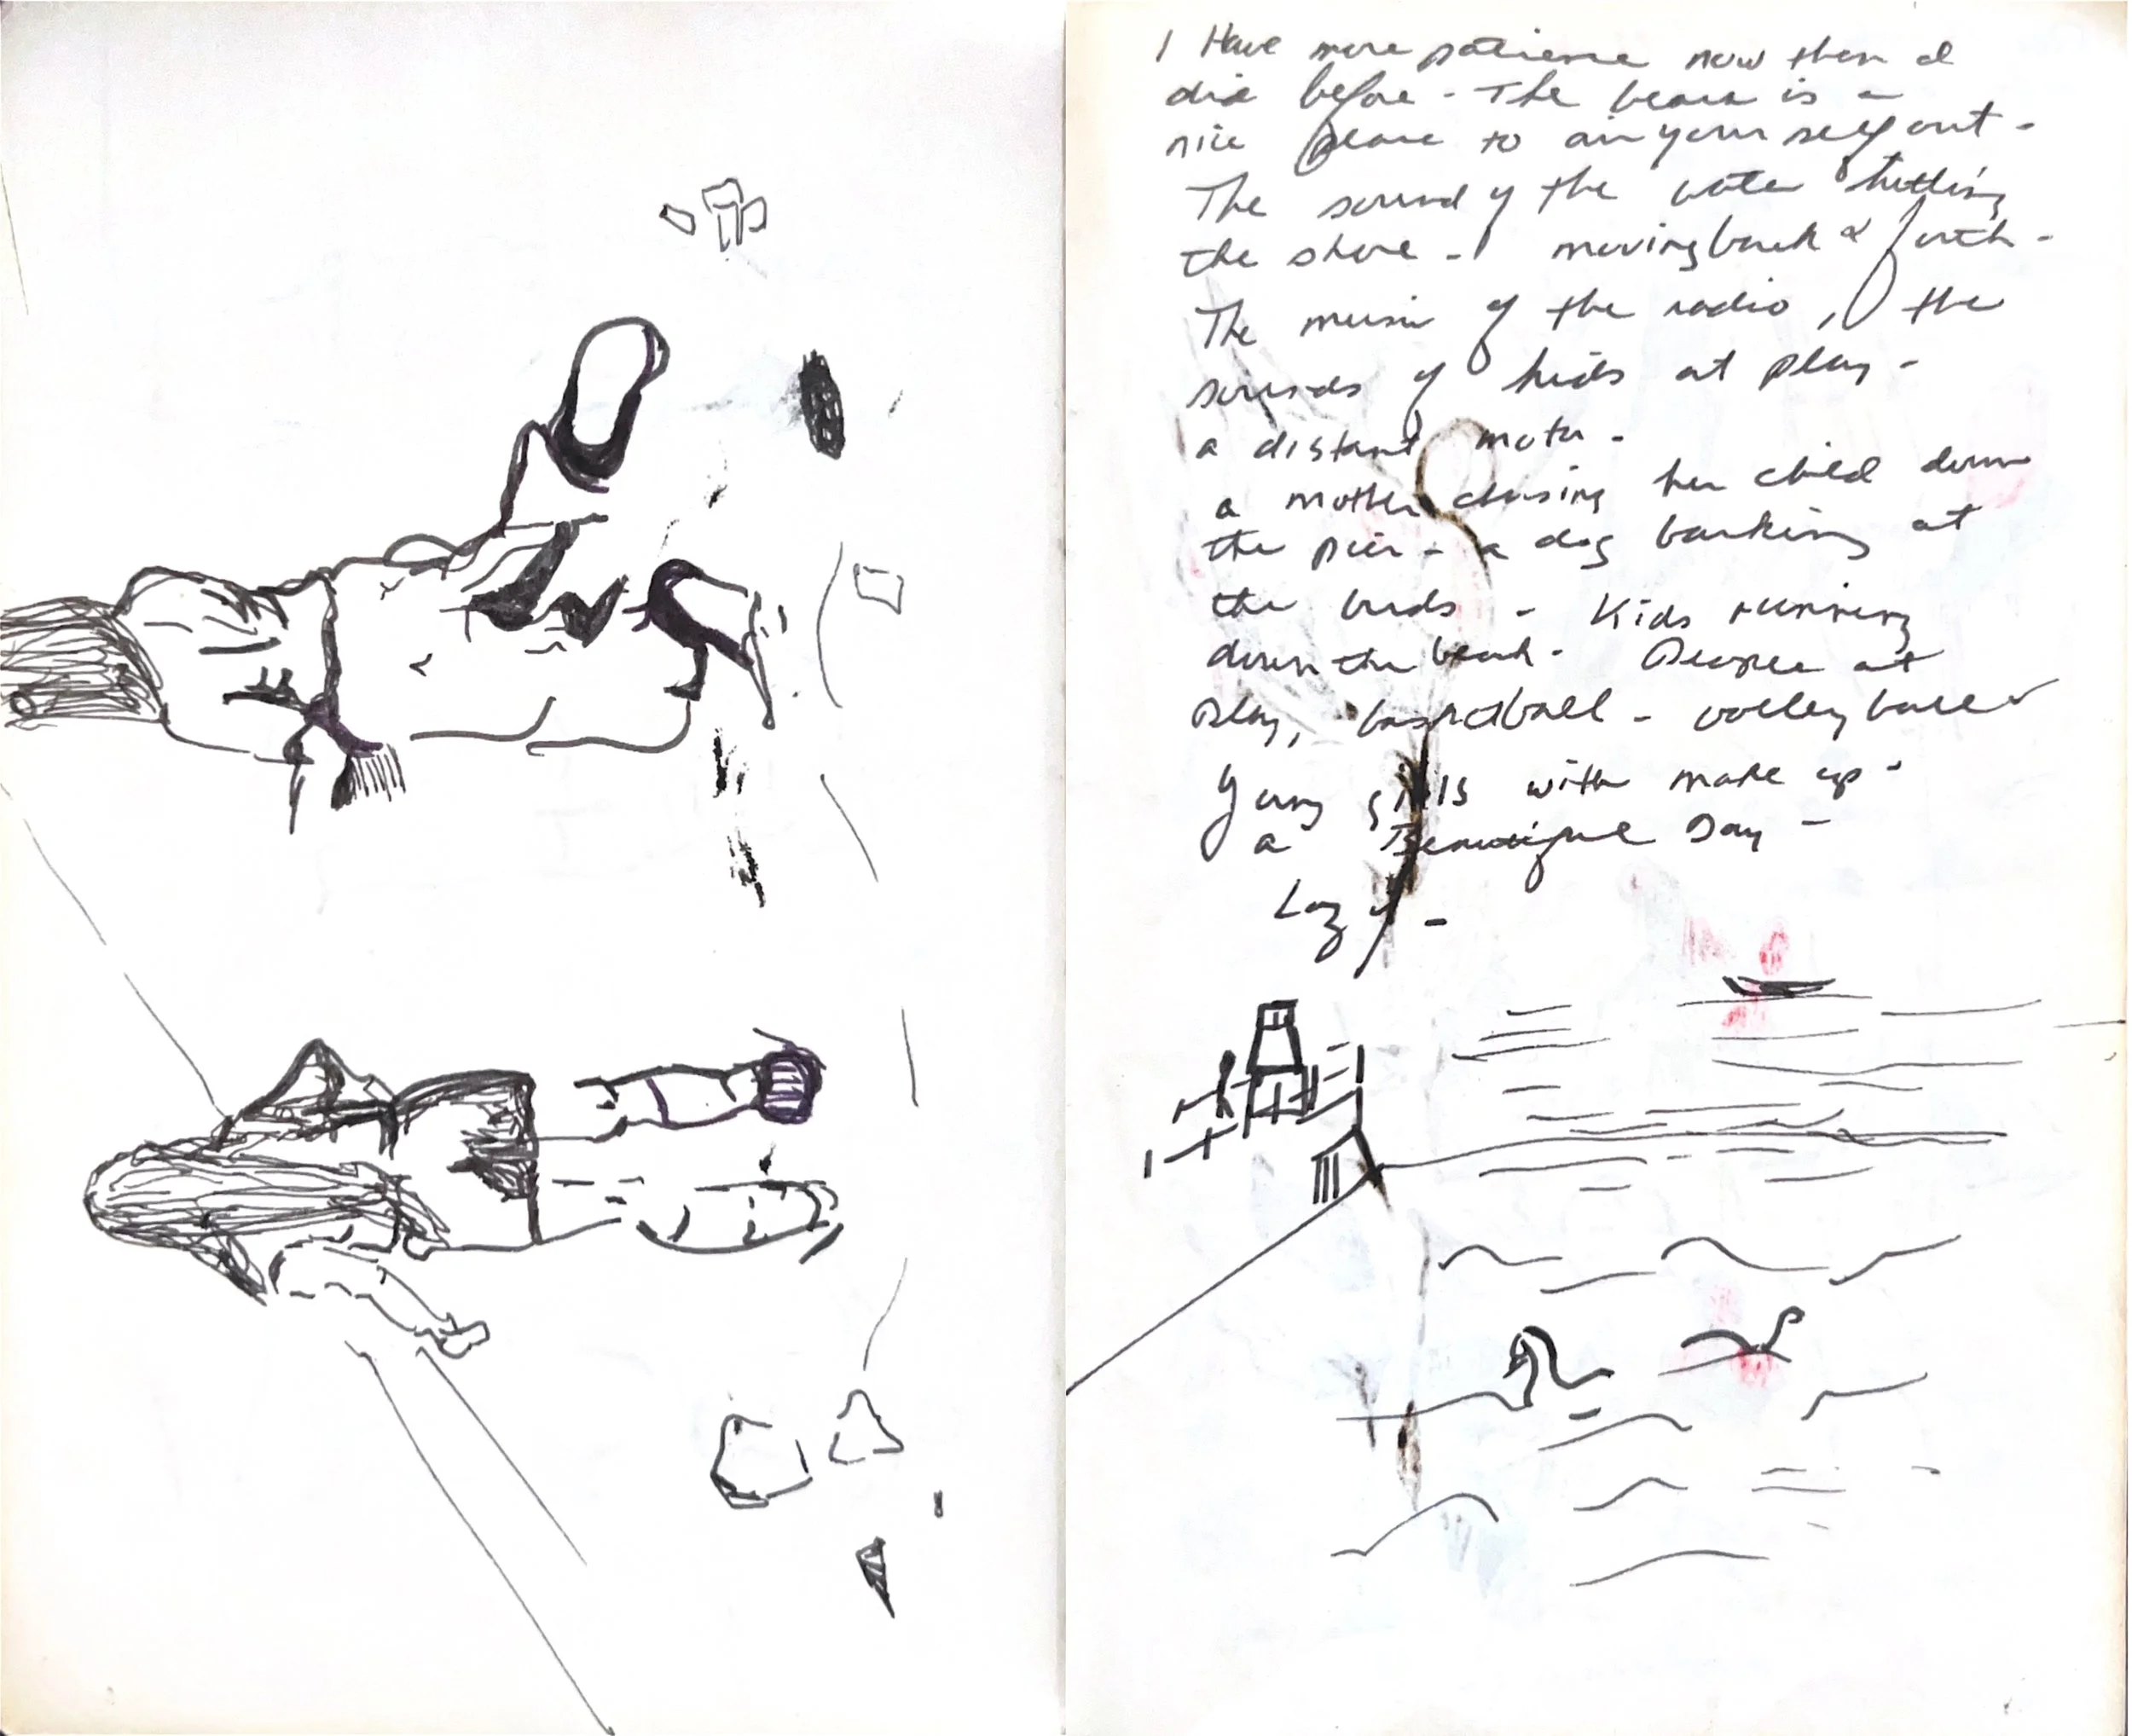 I Have more patience now then I
did before - The beach is a
nice place to air yourself out -
The sound of the water hitting
the shore - moving back & forth -
The music of the radio, the
sounds of kids at play -
a distant motor -
a mother chasing her child down
the pier - a dog barking at
the birds - Kids running
down the beach - People at
play, basketball - volleyball
Young girls with make up -
a Beautiful Day -
Lazy -